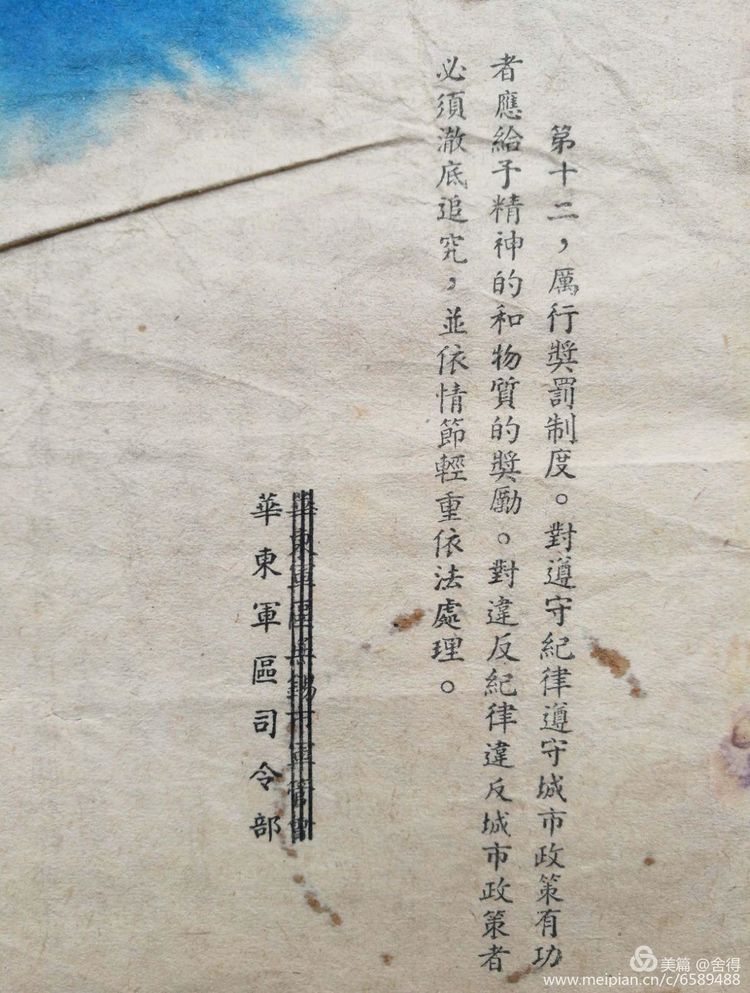 第十二，厲行獎罰制度。對遵守紀律遵守城市政策有功
者應給予精神的和物質的獎勵。對違反紀律違反城市政策者
必須澈底追究，並依情節輕重依法處理。
華東軍區無錫市軍管會
華東軍區司令部
美篇 @舍得
www.meipian.cn/c/6589488